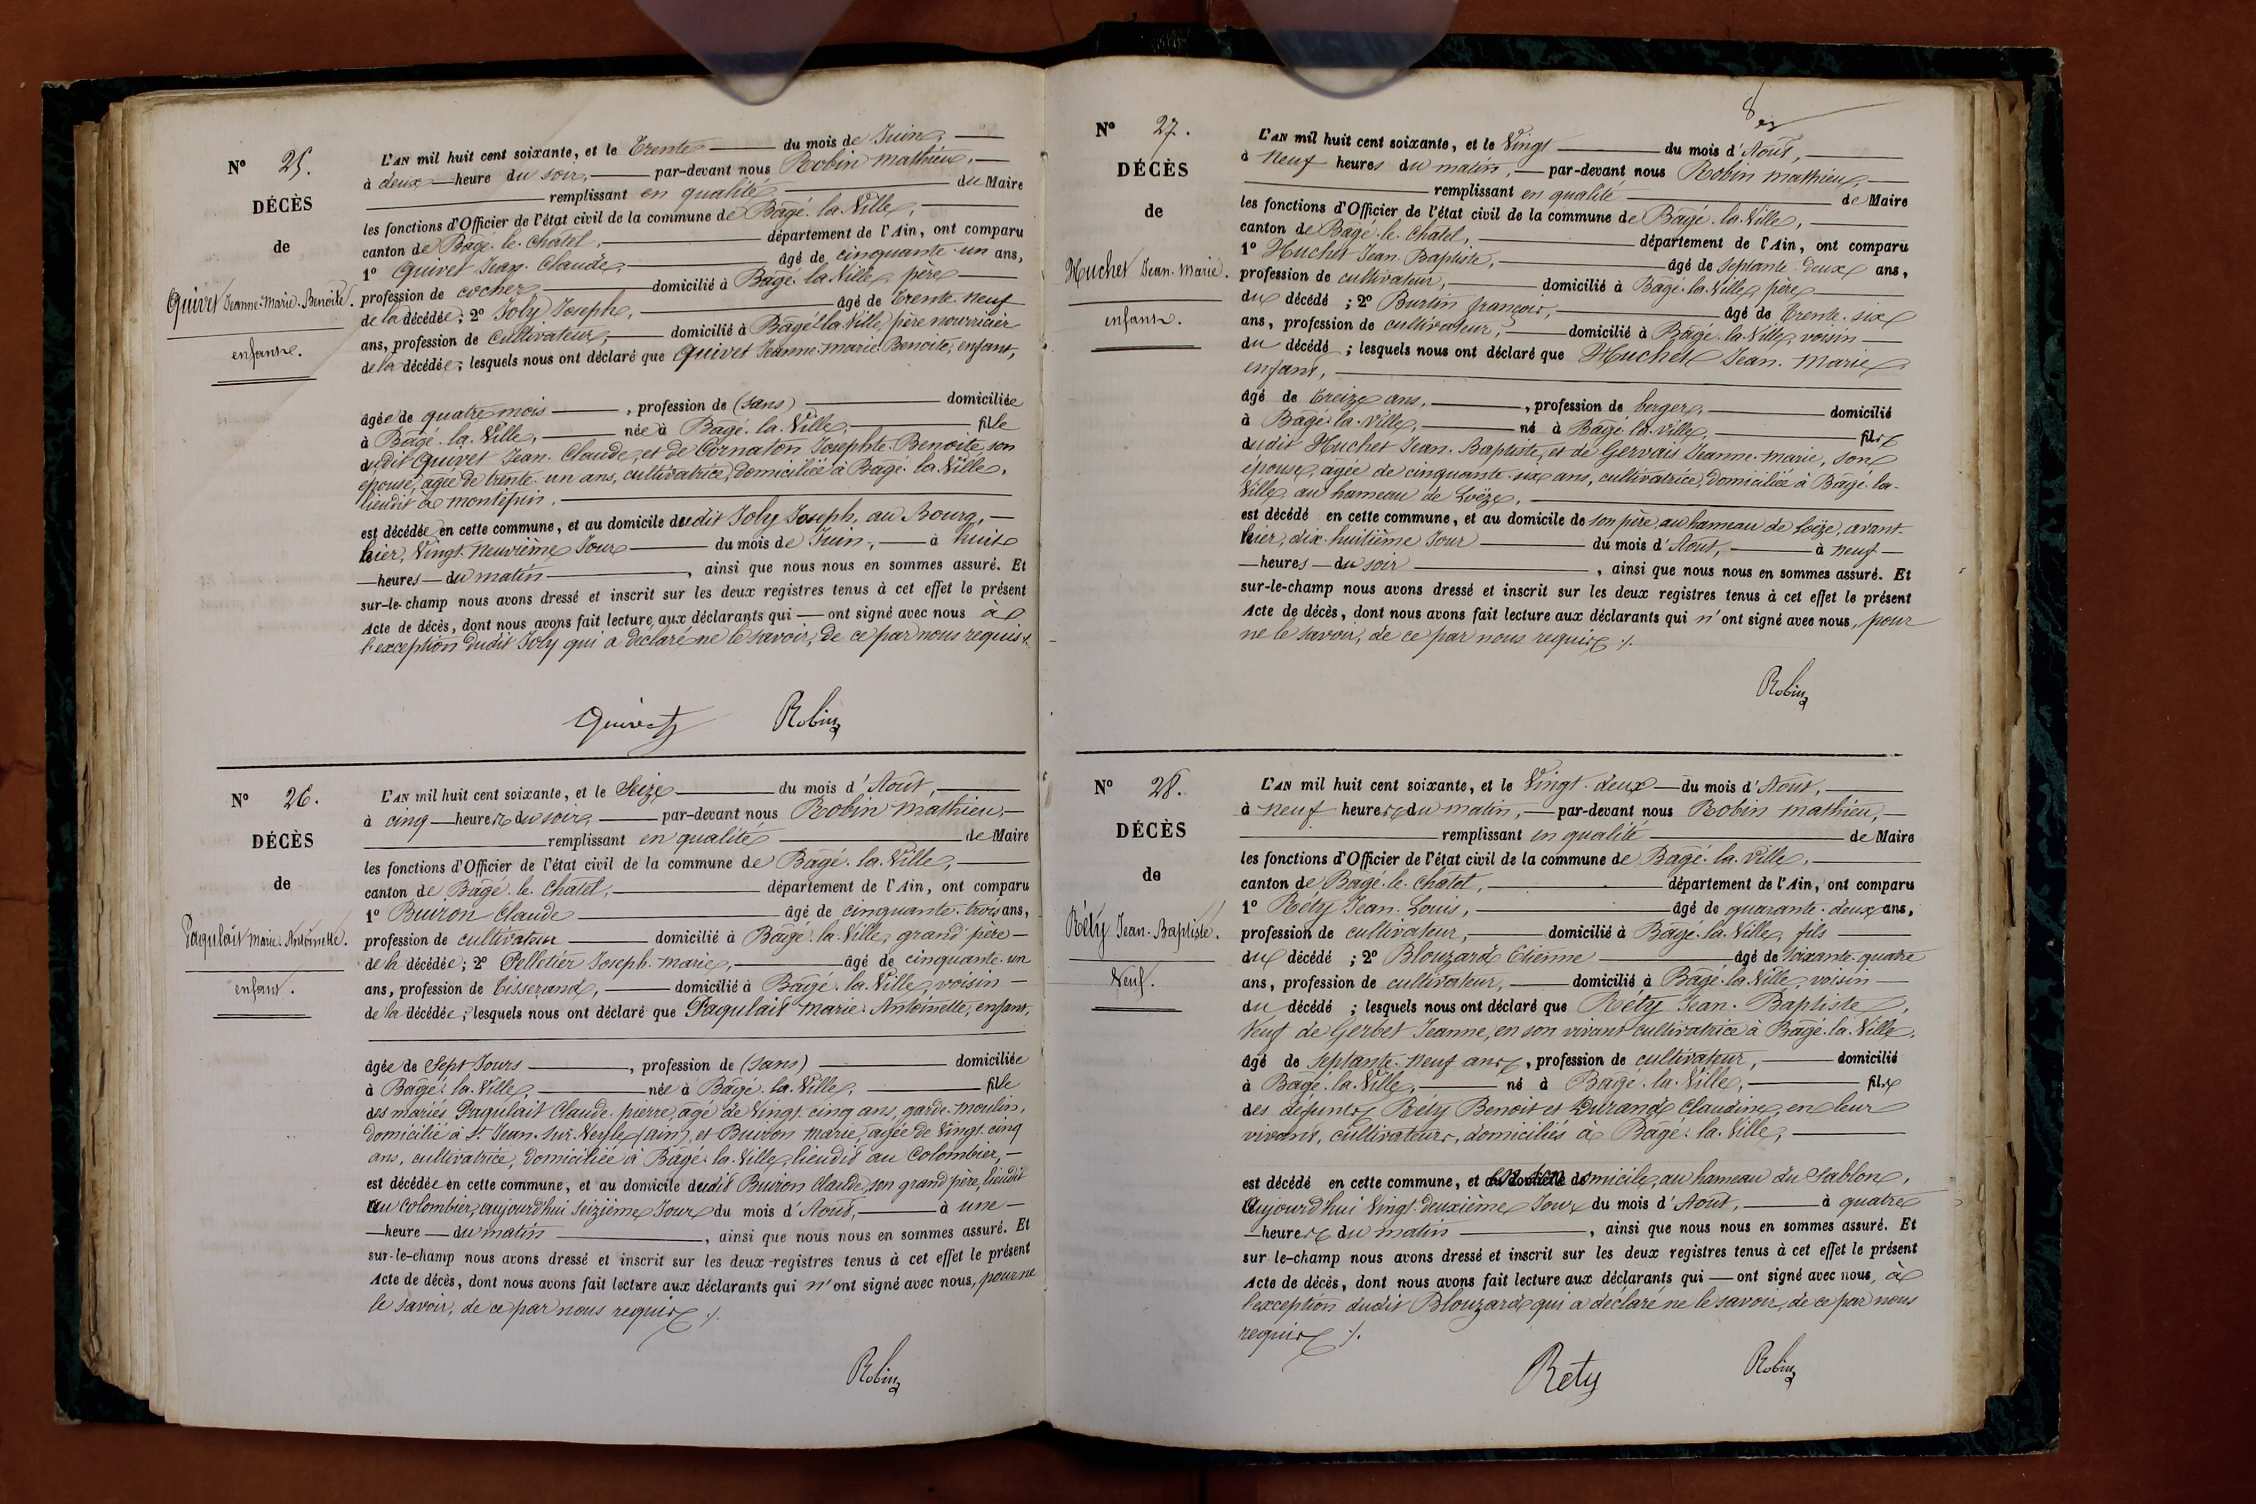 N° 25.
DÉCÈS
de
Quivet Jeanne-Marie-Benoite.
enfant.
L'AN mil huit cent soixante, et le Trente du mois de Juin,
à deux heure du soir, par-devant nous Robin Mathieu,
remplissant en qualité du Maire
les fonctions d'Officier de l'état civil de la commune de Bâgé-la-Ville,
canton de Bâgé-le-Chatel, département de l'Ain, ont comparu
1° Quivet Jean-Claude, âgé de cinquante-un ans,
profession de cocher domicilié à Bâgé-la-Ville, père
de la décédée; 2° Joly Joseph, âgé de Trente-neuf
ans, profession de cultivateur, domicilié à Bâgé-la-Ville, père nourricier
de la décédée; lesquels nous ont déclaré que Quivet Jeanne-Marie-Benoite, enfant,
âgée de quatre mois, profession de (sans) domiciliée
à Bâgé-la-Ville, née à Bâgé-la-Ville, fille
dudit Quivet Jean-Claude, et de Cornaton Josephte-Benoite, son
épouse, âgée de trente-un ans, cultivatrice, domiciliée à Bâgé-la-Ville,
lieudit à montépin.
est décédée en cette commune, et au domicile dudit Joly Joseph, au Bourg,
hier, Vingt-neuvième Jour du mois de Juin, à huit
heures du matin, ainsi que nous nous en sommes assuré. Et
sur-le-champ nous avons dressé et inscrit sur les deux registres tenus à cet effet le présent
Acte de décès, dont nous avons fait lecture aux déclarants qui ont signé avec nous à
l'exception dudit Joly qui a déclaré ne le savoir, de ce par nous requis.
Quivet Robin
N° 26.
DÉCÈS
de
Paquelait Marie-Antoinette.
enfant.
L'AN mil huit cent soixante, et le Seize du mois d'Aout,
à cinq heures du soir, par-devant nous Robin Mathieu,
remplissant en qualité de Maire
les fonctions d'Officier de l'état civil de la commune de Bâgé-la-Ville,
canton de Bâgé-le-Chatel, département de l'Ain, ont comparu
1° Buiron Claude âgé de cinquante-trois ans,
profession de cultivateur domicilié à Bâgé-la-Ville, grand père
de la décédée; 2° Pelletier Joseph-Marie, âgé de cinquante-un
ans, profession de Tisserand, domicilié à Bâgé-la-Ville, voisin
de la décédée; lesquels nous ont déclaré que Paqulait Marie-Antoinette, enfant,
âgée de Sept Jours, profession de (sans) domiciliée
à Bâgé-la-Ville, née à Bâgé-la-Ville, fille
des mariés Paqulait Claude-pierre, âgé de Vingt-cinq ans, garde-moulin,
domicilié à St Jean-sur-Veyle (ain), et Buiron Marie, agée de Vingt-cinq
ans, cultivatrice, domiciliée à Bâgé-la-Ville, lieudit au Colombier,
est décédée en cette commune, et au domicile dudit Buiron Claude, son grand père, lieudit
au Colombier, aujourd'hui Seizième Jour du mois d'Aout, à une
heure du matin, ainsi que nous nous en sommes assuré. Et
sur-le-champ nous avons dressé et inscrit sur les deux registres tenus à cet effet le présent
Acte de décès, dont nous avons fait lecture aux déclarants qui n'ont signé avec nous, pour ne
le savoir, de ce par nous requis ./.
Robin
8
N° 27.
DÉCÈS
de
Huchet Jean-Marie.
enfant.
L'AN mil huit cent soixante, et le Vingt du mois d'Aout,
à neuf heures du matin, par-devant nous Robin Mathieu,
remplissant en qualité de Maire
les fonctions d'Officier de l'état civil de la commune de Bâgé-la-Ville,
canton de Bâgé-le-Chatel, département de l'Ain, ont comparu
1° Huchet Jean-Baptiste, âgé de septante-deux ans,
profession de cultivateur, domicilié à Bâgé-la-Ville, père
du décédé; 2° Burtin françois, âgé de Trente-six
ans, profession de cultivateur, domicilié à Bâgé-la-Ville, voisin
du décédé; lesquels nous ont déclaré que Huchet Jean-Marie
enfant,
âgé de Treize ans, profession de berger, domicilié
à Bâgé-la-Ville, né à Bâgé-la-Ville, fils
dudit Huchet Jean-Baptiste, et de Gervais Jeanne-Marie, son
épouse, agée de cinquante-six ans, cultivatrice, domiciliée à Bâgé-la-
Ville, au hameau de Loëze,
est décédé en cette commune, et au domicile de son père, au hameau de Loëze, avant-
hier, dix-huitième Jour du mois d'Aout, à neuf
heures du soir, ainsi que nous nous en sommes assuré. Et
sur-le-champ nous avons dressé et inscrit sur les deux registres tenus à cet effet le présent
Acte de décès, dont nous avons fait lecture aux déclarants qui n'ont signé avec nous, pour
ne le savoir, de ce par nous requis ./.
Robin
N° 28.
DÉCÈS
de
Réty Jean-Baptiste.
Veuf.
L'AN mil huit cent soixante, et le Vingt-deux du mois d'Aout,
à neuf heures du matin, par-devant nous Robin Mathieu,
remplissant en qualité de Maire
les fonctions d'Officier de l'état civil de la commune de Bâgé-la-Ville,
canton de Bâgé-le-Chatel, département de l'Ain, ont comparu
1° Réty Jean-Louis, âgé de quarante-deux ans,
profession de cultivateur, domicilié à Bâgé-la-Ville, fils
du décédé; 2° Blouzard Etienne âgé de soixante-quatre
ans, profession de cultivateur, domicilié à Bâgé-la-Ville, voisin
du décédé; lesquels nous ont déclaré que Réty Jean-Baptiste,
Veuf de Gerbet Jeanne, en son vivant cultivatrice à Bâgé-la-Ville,
âgé de septante-neuf ans, profession de cultivateur, domicilié
à Bâgé-la-Ville, né à Bâgé-la-Ville, fils
des défunts Réty Benoit et Durand Claudine, en leur
vivant, cultivateurs, domiciliés à Bâgé-la-Ville,
est décédé en cette commune, et en son domicile, au hameau du Sablon,
aujourd'hui Vingt-deuxième Jour du mois d'Aout, à quatre
heures du matin, ainsi que nous nous en sommes assuré. Et
sur-le-champ nous avons dressé et inscrit sur les deux registres tenus à cet effet le présent
Acte de décès, dont nous avons fait lecture aux déclarants qui ont signé avec nous, à
l'exception dudit Blouzard qui a déclaré ne le savoir, de ce par nous
requis ./.
Rety Robin